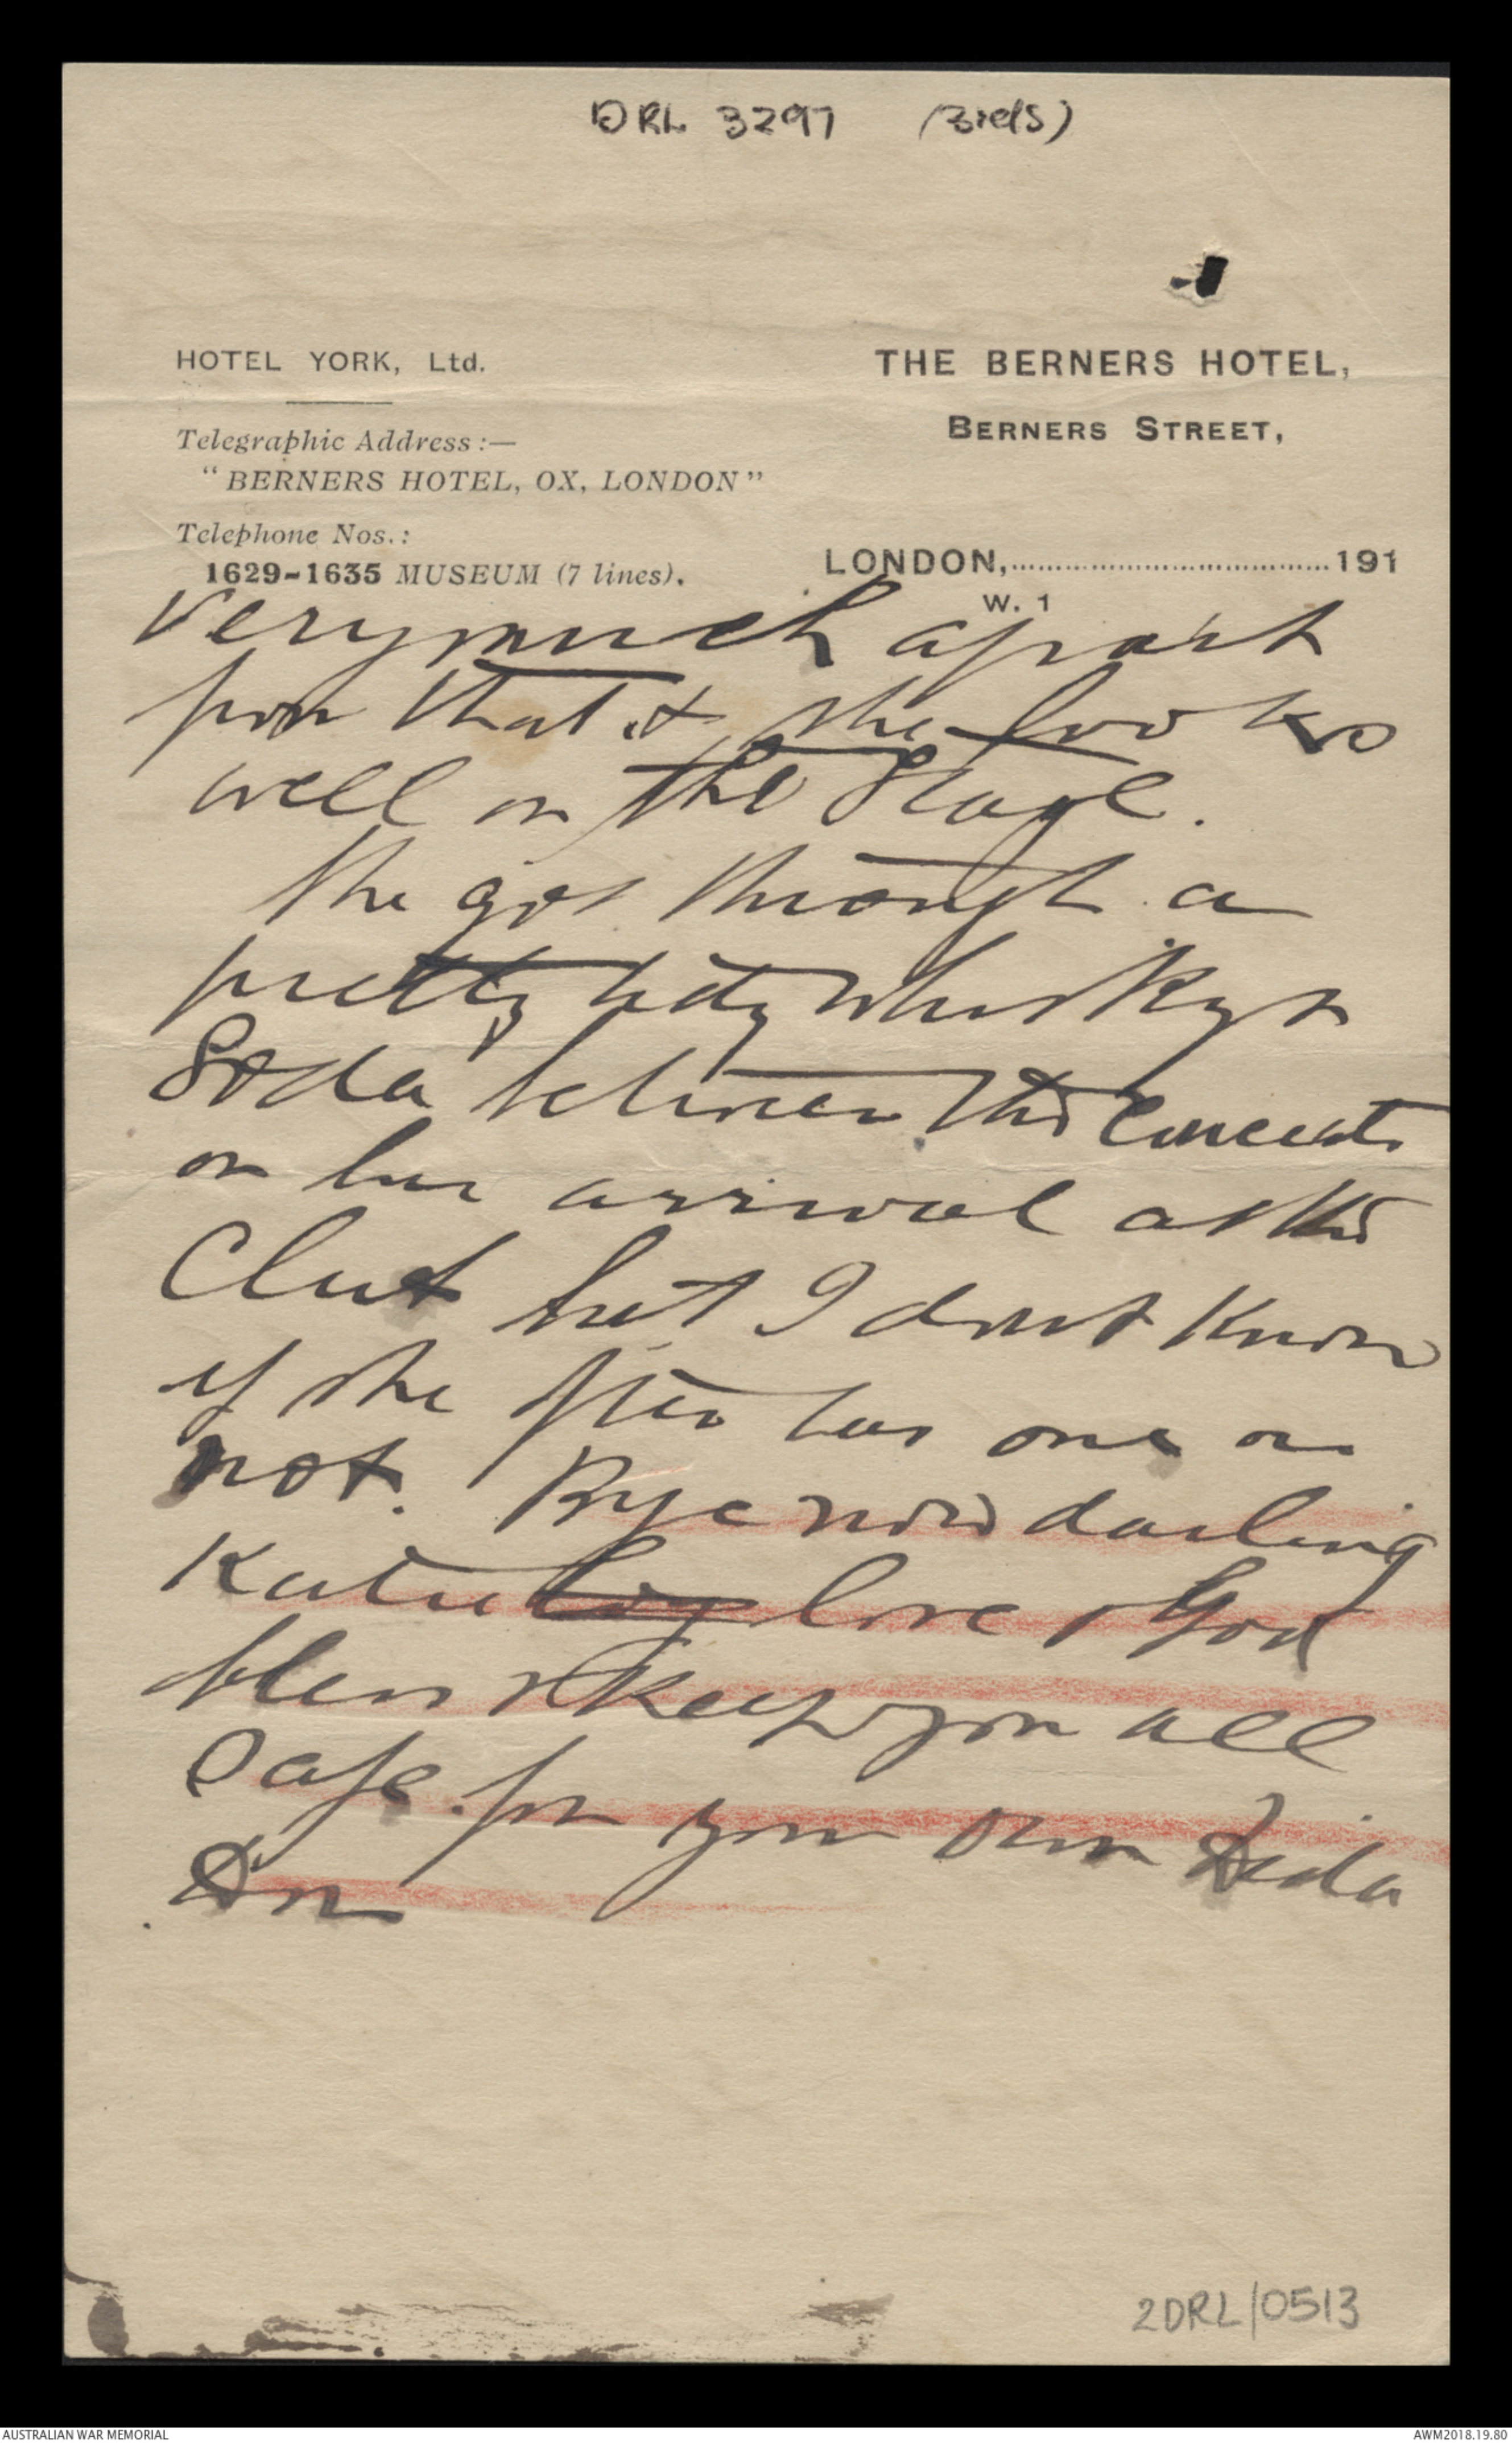 DRL 3297 (3rdS)
HOTEL YORK, Ltd.
THE BERNERS HOTEL,
BERNERS STREET,
Telegraphic Address:—
"BERNERS HOTEL, OX, LONDON"
Telephone Nos.:
1629-1635 MUSEUM (7 lines).
LONDON, 191
W. 1
Very much apart
from that & she looks
well on the stage.
She got through a
pretty tidy whisky &
Soda between the Concerts
on her arrival at the
Club but I dont know
if she often has one or
not. Bye now darling
Katie love & God
bless & keep you all
safe for your own Dida
Don
2DRL/0513
AUSTRALIAN WAR MEMORIAL
AWM2018.19.80